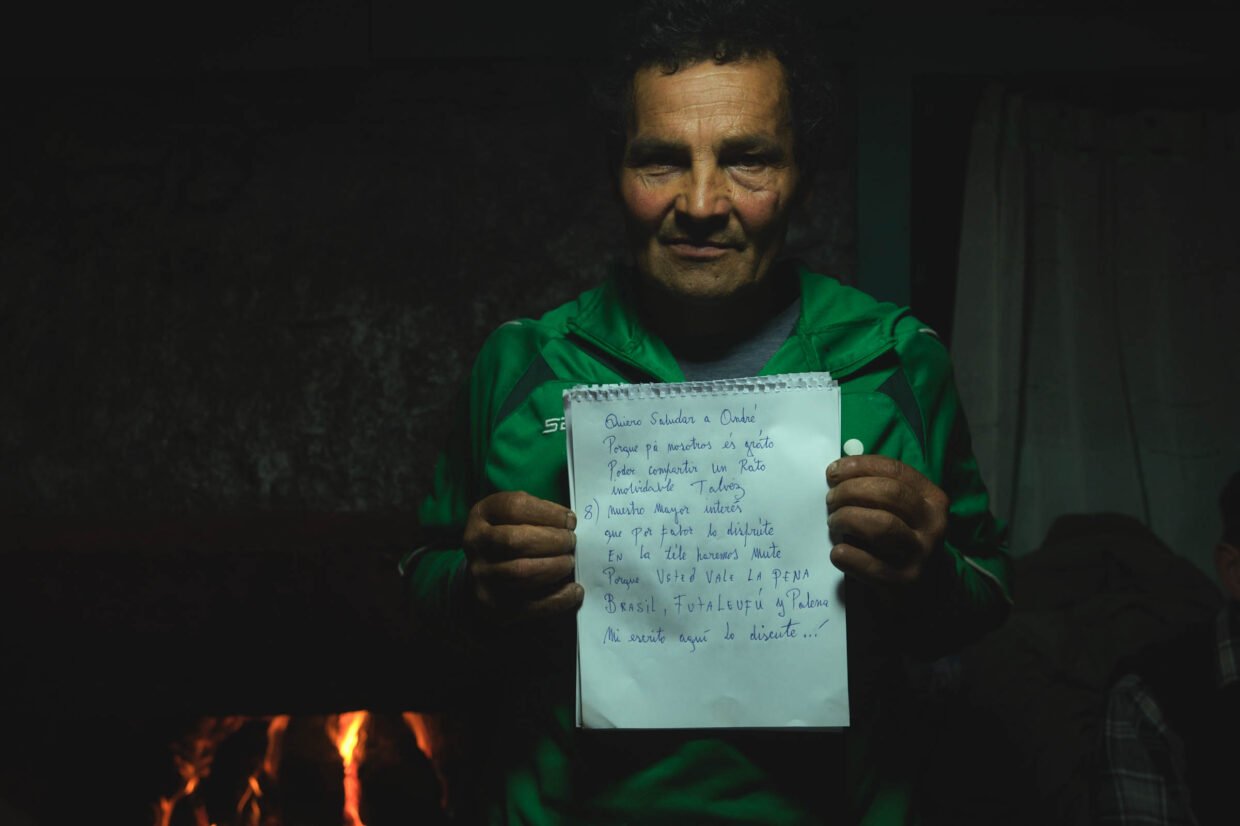 Quiero Saludar a Ondré
Porque pá nosotros és gráto
Poder compartir un Ráto
inolvidable Talvéz
8) nuestro mayor interés
que por fabor lo disfrúte
EN la téle haremos Mute
Porque USTED VALE LA PENA
BRASIL, FUTALEUFÚ y Palena
Mi escrito aquí lo discute...!